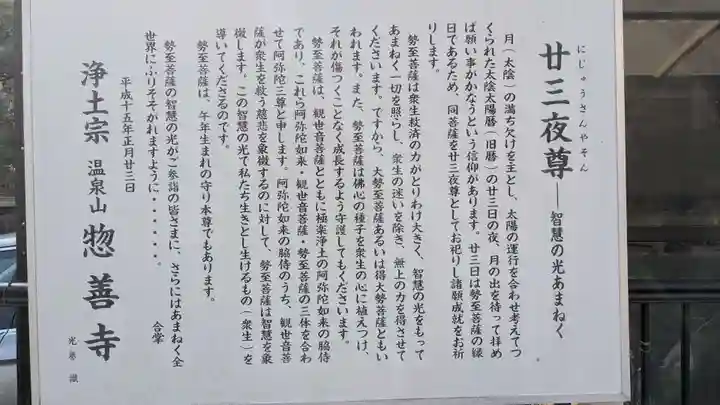 にじゅうさんやそん
廿三夜尊――智慧の光あまねく
月(太陰)の満ち欠けを主とし、太陽の運行を合わせ考えてつ
くられた太陰太陽暦(旧暦)の廿三日の夜、月の出を待って拝め
ば願い事がかなうという信仰があります。廿三日は勢至菩薩の縁
日であるため、同菩薩を廿三夜尊としてお祀りし諸願成就をお祈
りします。
勢至菩薩は衆生救済の力がとりわけ大きく、智慧の光をもって
あまねく一切を照らし、衆生の迷いを除き、無上の力を得させて
くださいます。ですから、大勢至菩薩あるいは得大勢菩薩ともい
われます。また、勢至菩薩は佛心の種子を衆生の心に植えつけ、
それが傷つくことなく成長するよう守護してもくださいます。
勢至菩薩は、観世音菩薩とともに極楽浄土の阿弥陀如来の脇侍
であり、これら阿弥陀如来・観世音菩薩・勢至菩薩の三体を合わ
せて阿弥陀三尊と申します。阿弥陀如来の脇侍のうち、観世音菩
薩が衆生を救う慈悲を象徴するのに対して、勢至菩薩は智慧を象
徴します。この智慧の光で私たち生きとし生けるもの(衆生)を
導いてくださるのです。
勢至菩薩は、午年生まれの守り本尊でもあります。
勢至菩薩の智慧の光がご参詣の皆さまに、さらにはあまねく全
世界にふりそそがれますように・・・・・・。
合掌
平成十五年正月廿三日
浄土宗 温泉山 惣善寺